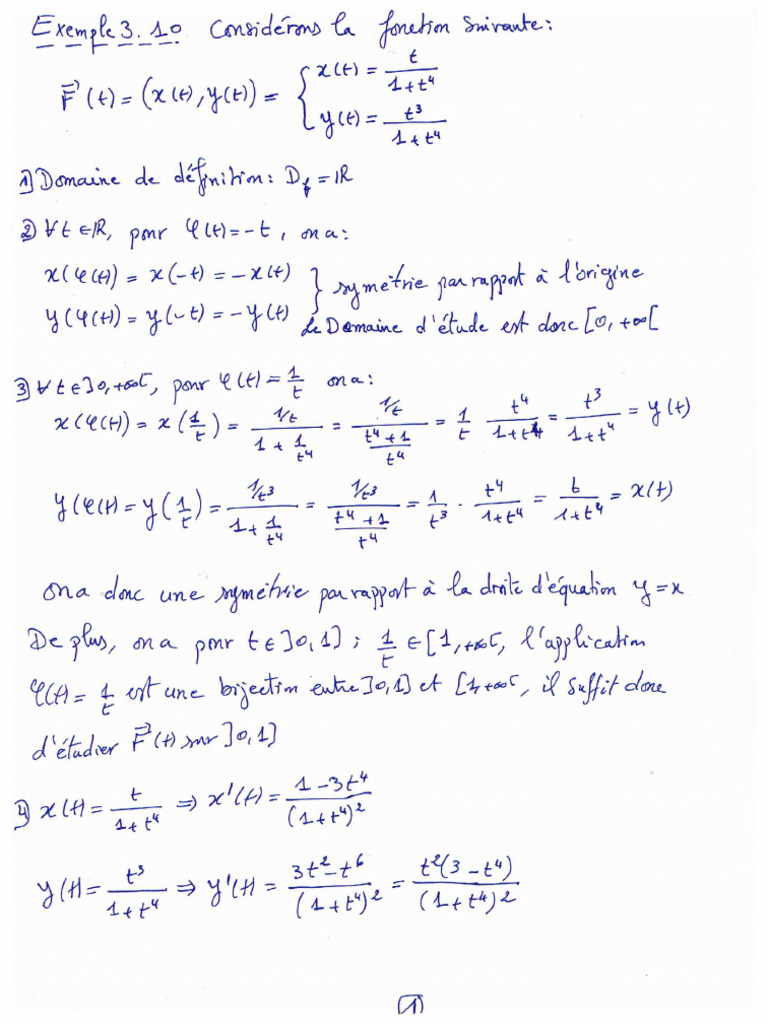 Exemple 3.10 Considérons la fonction suivante:
F⃗(t) = (x(t), y(t)) = { x(t) = t/(1+t⁴)
y(t) = t³/(1+t⁴)
1) Domaine de définition: D_f = ℝ
2) ∀t ∈ ℝ, pour φ(t) = -t, on a:
x(φ(t)) = x(-t) = -x(t) } symétrie par rapport à l'origine
y(φ(t)) = y(-t) = -y(t) Le Domaine d'étude est donc [0, +∞[
3) ∀t ∈ ]0, +∞[, pour φ(t) = 1/t on a:
x(φ(t)) = x(1/t) = (1/t)/(1 + 1/t⁴) = (1/t)/((t⁴+1)/t⁴) = 1/t t⁴/(1+t⁴) = t³/(1+t⁴) = y(t)
y(φ(t) = y(1/t) = (1/t³)/(1 + 1/t⁴) = (1/t³)/((t⁴+1)/t⁴) = 1/t³ · t⁴/(1+t⁴) = t/(1+t⁴) = x(t)
on a donc une symétrie par rapport à la droite d'équation y = x
De plus, on a pour t ∈ ]0, 1] ; 1/t ∈ [1, +∞[, l'application
φ(t) = 1/t est une bijection entre ]0, 1] et [1, +∞[, il suffit donc
d'étudier F⃗(t) sur ]0, 1]
4) x(t) = t/(1+t⁴) ⇒ x'(t) = (1-3t⁴)/(1+t⁴)²
y(t) = t³/(1+t⁴) ⇒ y'(t) = (3t²-t⁶)/(1+t⁴)² = t²(3-t⁴)/(1+t⁴)²
1